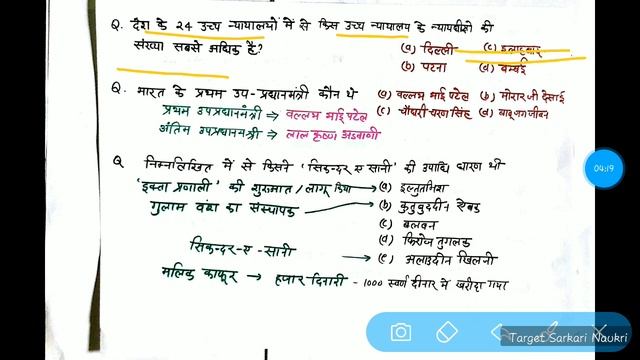 Q. देश के 24 उच्च न्यायालयों में से किस उच्च न्यायालय के न्यायधीशों की
संख्या सबसे अधिक है? (a) दिल्ली (c) इलाहबाद
(b) पटना (d) बम्बई
Q. भारत के प्रथम उप-प्रधानमंत्री कौन थे (a) वल्लभ भाई पटेल (b) मोरारजी देसाई
प्रथम उपप्रधानमंत्री ⇒ वल्लभ भाई पटेल (c) चौधरी चरण सिंह (d) बाबू जगजीवन
अंतिम उपप्रधानमंत्री ⇒ लाल कृष्ण अडवाणी
Q निम्नलिखित में से किसने 'सिकन्दर ए सानी' की उपाधि धारण की
'इक्ता प्रणाली' की शुरुआत / लागू किया → (a) इल्तुतमिश
गुलाम वंश का संस्थापक → (b) कुतुबुद्दीन ऐबक
(c) बलबन
(d) फिरोज तुगलक
सिकन्दर-ए-सानी → (e) अलाउद्दीन खिलजी
मलिक काफूर → हजार दिनारी - 1000 स्वर्ण दीनार में खरीदा गया
04:19
Target Sarkari Naukri